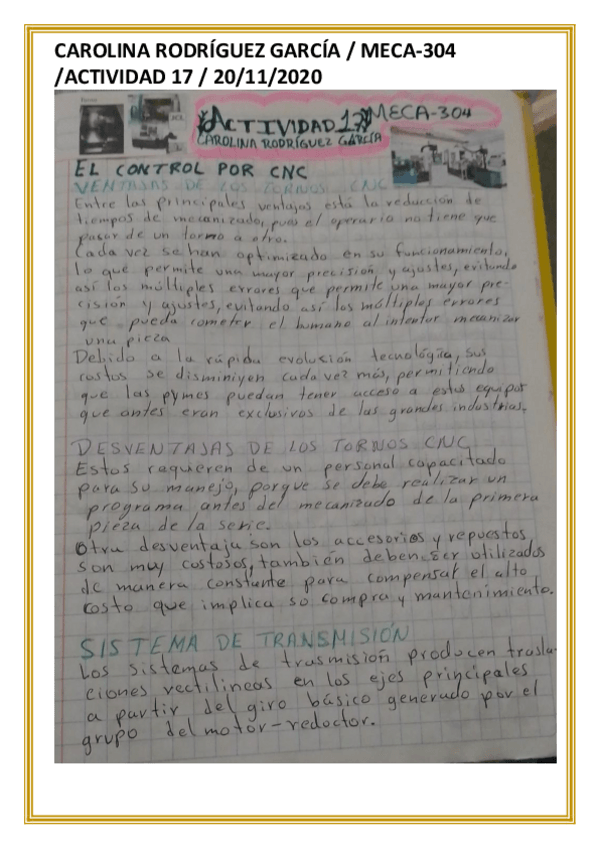 CAROLINA RODRÍGUEZ GARCÍA / MECA-304
/ACTIVIDAD 17 / 20/11/2020
ACTIVIDAD 17 MECA-304
CAROLINA RODRÍGUEZ GARCÍA
EL CONTROL POR CNC
VENTAJAS DE LOS TORNOS CNC
Entre las principales ventajas está la reducción de
tiempos de mecanizado, pues el operario no tiene que
pasar de un torno a otro.
Cada vez se han optimizado en su funcionamiento,
lo que permite una mayor precisión y ajustes, evitando
así los múltiples errores que permite una mayor pre-
cisión y ajustes, evitando así los múltiples errores
que pueda cometer el humano al intentar mecanizar
una pieza
Debido a la rápida evolución tecnológia, sus
costos se disminiyen cada vez más, permitiendo
que las pymes puedan tener acceso a estos equipos
que antes eran exclusivos de las grandes industrias.
DESVENTAJAS DE LOS TORNOS CNC
Estos requieren de un personal capacitado
para su manejo, porque se debe realizar un
programa antes del mecanizado de la primera
pieza de la serie.
Otra desventaja son los accesorios y repuestos
son muy costosos, también deben ser utilizados
de manera constante para compensar el alto
costo que implica so compra y mantenimiento.
SISTEMA DE TRANSMISIÓN
Los sistemas de trasmisión producen trasla-
ciones rectilineas en los ejes principales
a partir del giro básico generado por el
grupo del motor-redoctor.